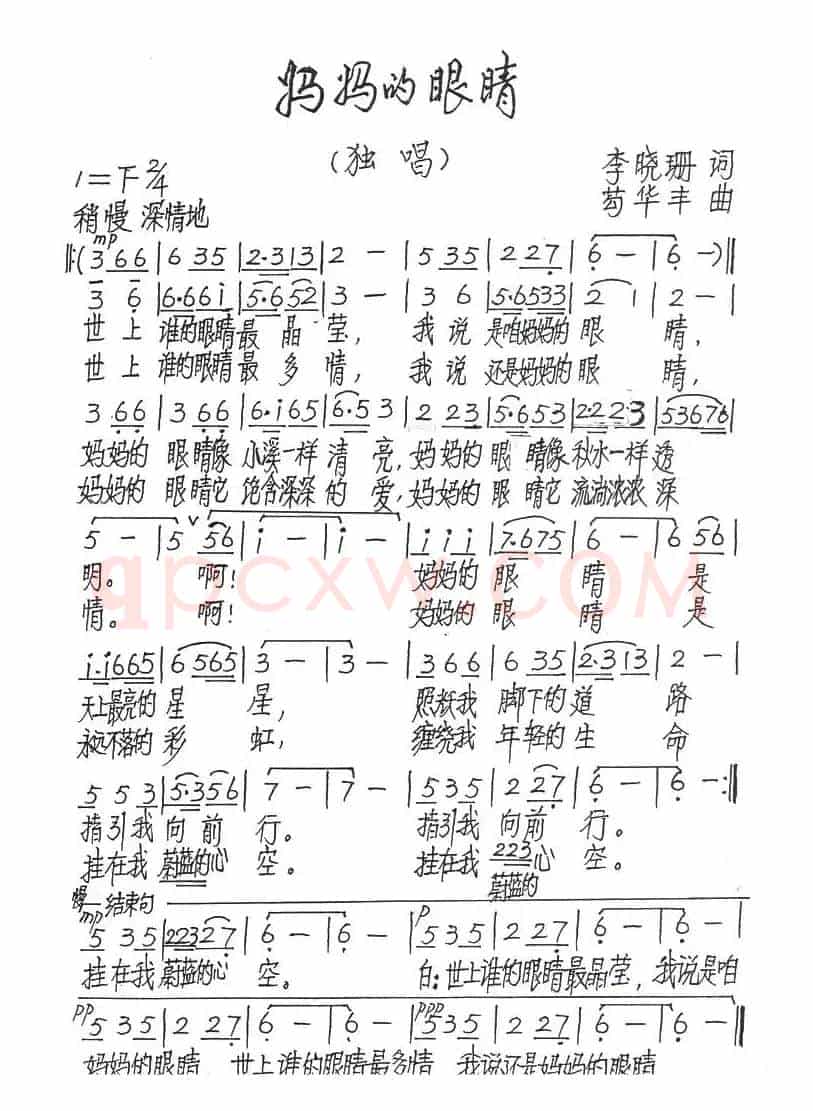 妈妈的眼睛
（独唱）
1=下 2/4
李晓珊 词
苟华丰 曲
稍慢 深情地
mp
‖:(3 6 6 | 6 3 5 | 2·3 1 3 | 2 － | 5 3 5 | 2 2 7 | 6 － | 6 －)‖
3 6 | 6·6 6 i | 5·6 5 2 | 3 － | 3 6 | 5·6 5 3 3 | 2 1 | 2 － |
世上 谁的眼睛最 晶 莹， 我说 是咱妈妈的 眼 睛，
世上 谁的眼睛最 多 情， 我说 还是妈妈的 眼 睛，
3 6 6 | 3 6 6 | 6·i 6 5 | 6·5 3 | 2 2 3 | 5·6 5 3 | 2·2 2·3 | 5 3 6 7 6 |
妈妈的 眼睛像 小溪一样 清 亮，妈妈的 眼睛像 秋水一样 透
妈妈的 眼睛它 饱含深深 的 爱，妈妈的 眼睛它 流淌浓浓 深
5 － | 5 v 5 6 | i － | i － | i i i | 7·6 7 5 | 6 － | 6 5 6 |
明。 啊！ 妈妈的 眼 睛 是
情。 啊！ 妈妈的 眼 睛 是
i·i 6 6 5 | 6 5 6 5 | 3 － | 3 － | 3 6 6 | 6 3 5 | 2·3 1 3 | 2 － |
天上最亮的 星 星， 照抚我 脚下的 道 路
永远不落的 彩 虹， 缠绕我 年轻的 生 命
5 5 3 | 5·3 5 6 | 7 － | 7 － | 5 3 5 | 2 2 7 | 6 － | 6 －:‖
指引我 向前 行。 指引我 向前 行。
挂在我 蔚蓝的心 空。 挂在我 2 2 3 心 空。
蔚蓝的
慢 结束句
mp
p
5 3 5 | 2 2 3 2 7 | 6 － | 6 － | 5 3 5 | 2 2 7 | 6 － | 6 － |
挂在我 蔚蓝的心 空。 白：世上谁的眼睛最晶莹，我说是咱
pp 5 3 5 | 2 2 7 | 6 － | 6 － | ppp 5 3 5 | 2 2 7 | 6 － | 6 －‖
妈妈的眼睛 世上谁的眼睛最多情 我说还是妈妈的眼睛
qpcxw.COM